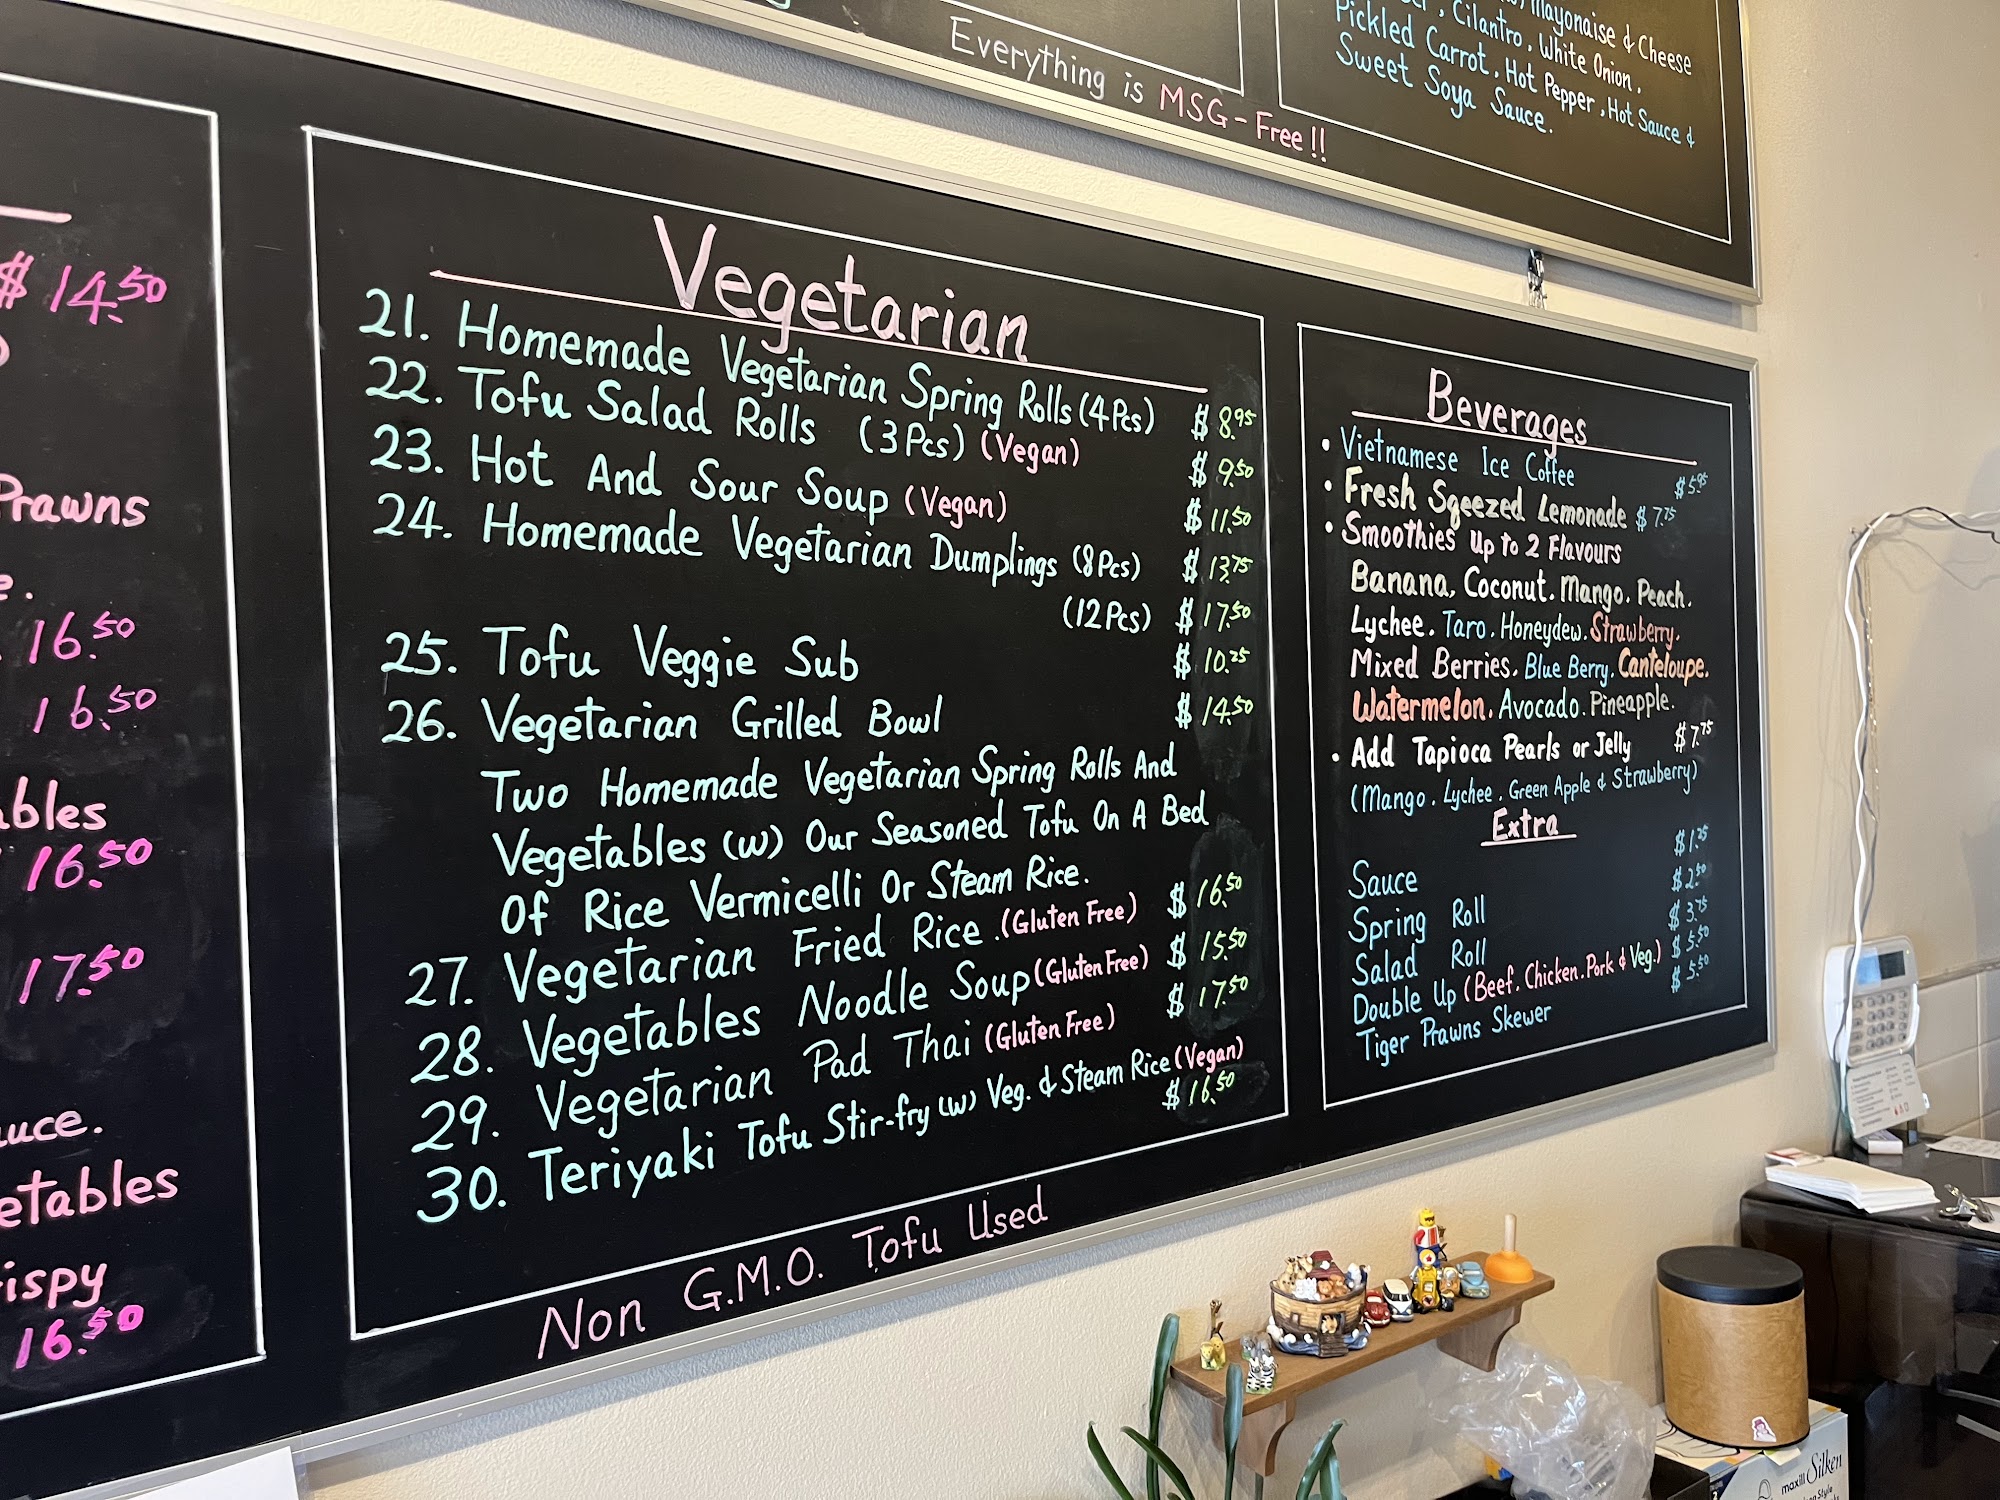 Mayonaise & Cheese
Cilantro, White Onion,
Pickled Carrot, Hot Pepper, Hot Sauce &
Sweet Soya Sauce.
Everything is MSG-Free!!
$14.50
Prawns
16.50
16.50
16.50
17.50
16.50
Vegetarian
21. Homemade Vegetarian Spring Rolls (4Pcs) $8.95
22. Tofu Salad Rolls (3Pcs) (Vegan) $9.50
23. Hot And Sour Soup (Vegan) $11.50
24. Homemade Vegetarian Dumplings (8Pcs) $13.75
(12Pcs) $17.50
25. Tofu Veggie Sub $10.25
26. Vegetarian Grilled Bowl $14.50
Two Homemade Vegetarian Spring Rolls And
Vegetables (w) Our Seasoned Tofu On A Bed
Of Rice Vermicelli Or Steam Rice.
27. Vegetarian Fried Rice. (Gluten Free) $16.50
28. Vegetables Noodle Soup (Gluten Free) $15.50
29. Vegetarian Pad Thai (Gluten Free) $17.50
30. Teriyaki Tofu Stir-fry (w) Veg. & Steam Rice (Vegan)
$16.50
Non G.M.O. Tofu Used
Beverages
• Vietnamese Ice Coffee $5.95
• Fresh Sqeezed Lemonade $7.75
• Smoothies up to 2 Flavours
Banana, Coconut. Mango. Peach.
Lychee. Taro. Honeydew. Strawberry.
Mixed Berries. Blue Berry. Canteloupe.
Watermelon. Avocado. Pineapple.
• Add Tapioca Pearls or Jelly $7.75
(Mango. Lychee. Green Apple & Strawberry)
Extra
$1.25
Sauce $2.50
Spring Roll $3.75
Salad Roll $5.50
Double Up (Beef. Chicken. Pork & Veg.) $5.50
Tiger Prawns Skewer
maxill Silken